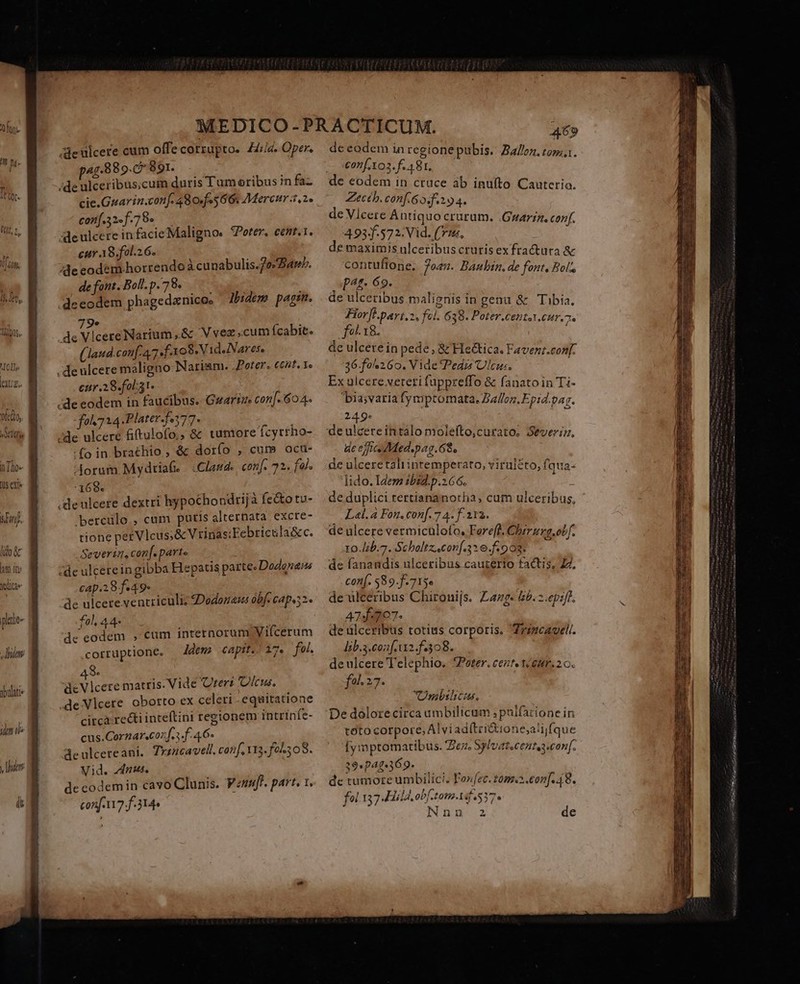 MEDICO-PRACTICUM. 469
de ulcere cum osse corrupto. Hild. Oper.
pag.889.& 891.
de ulceribus,cum duris Tumoribus in fa-
cie.Guarin.conf.480.f.566. Mercur.t.2.
conf.32.f.78.
de ulcere in facie Maligno. Poter. cent.1.
cur.18.fol.26.
de eodem horrendo à cunabulis. Jo.Bauh.
de font. Boll.p.78.
de eodem phagedænico. Ibidem pagin.
79.
de Vlcere Narium, & Vvez, cum scabie.
(laud.conf.47.f.108.Vid.Nares.
de ulcere maligno Narium. Poter. cent. 1.
cur.28.fol.31.
de eodem in faucibus. Guarin. conf. 604.
fol.724.Plater.f.577.
de ulcere fistuloso, & tumore scyrrho-
so in brachio, & dorso, cum ocu-
lorum Mydriasi. Claud. conf. 72. fol.
168.
de ulcere dextri hypochondrijà secto tu-
berculo, cum puris alternata excre-
tione per Vlcus,& Vrinas: Febricula &c.
Severin, conf. parte
de ulcere in gibba Hepatis parte. Dodonæus
cap.28.f.49.
de ulcere ventriculi. Dodonæus obs. cap.32.
fol. 44.
de eodem, cum internorum Viscerum
corruptione. Idem capit. 17. fol.
48.
de Vlcere matris. Vide Uteri Ulcus.
de Vlcere oborto ex celeri equitatione
circa recti intestini regionem intrinse-
cus. Cornar.conf.3.f.46.
de ulcere ani. Trincavell. conf. 113. fol.308.
Vid. Anus.
de eodem in cavo Clunis. Venust. part. 1.
conf.117.f.314.
de eodem in regione pubis. Ballon. tom.1.
conf.103.f.481.
de eodem in cruce ab inusto Cauterio.
Zecch.conf.60.f.294.
de Vlcere Antiquo crurum. Guarin.conf.
493.f.572.Vid. Crus.
de maximis ulceribus cruris ex fractura &
contusione. Joan. Bauhin.de font. Bol.
pag. 69.
de ulceribus malignis in genu & Tibia.
Horst.part.2. fol. 638. Poter.cent.1.cur.7.
fol.18.
de ulcere in pede, & Hectica. Favent.conf.
36.fol.260. Vide Pedis Ulcus.
Ex ulcere veteri suppresso & sanato in Ti-
bia, varia symptomata. Ballon.Epid.pag.
249.
de ulcere in talo molesto, curato. Severin.
de effic.Med.pag.68.
de ulcere tali intemperato, virulēto, squa-
lido. Idem ibid.p.266.
de duplici tertiana notha, cum ulceribus.
Lal. a Fon. conf. 74. f.212.
de ulcere vermiculoso. Forest. Chirurg.obs.
10.lib.7. Scholtz.conf.320.f.903.
de sanandis ulceribus cauterio factis. Id.
conf. 589.f.715.
de ulceribus Chironijs. Lang. lib.2.epist.
47.f.707.
de ulceribus totius corporis. Trincavell.
lib.3.conf.112.f.308.
de ulcere Telephio. Poter. cent. 1. cur.20.
fol.27.
Umbilicus.
De dolore circa umbilicum, pulsatione in
toto corpore, Alvi adstrictione, alijsque
symptomatibus. Ben. Sylvat.cent.3.conf.
39.pag.369.
de tumore umbilici. Fonsec.tom.2.conf.48.
fol.137.Hild.obs.tom.1.f.537.
Nnn 2 de